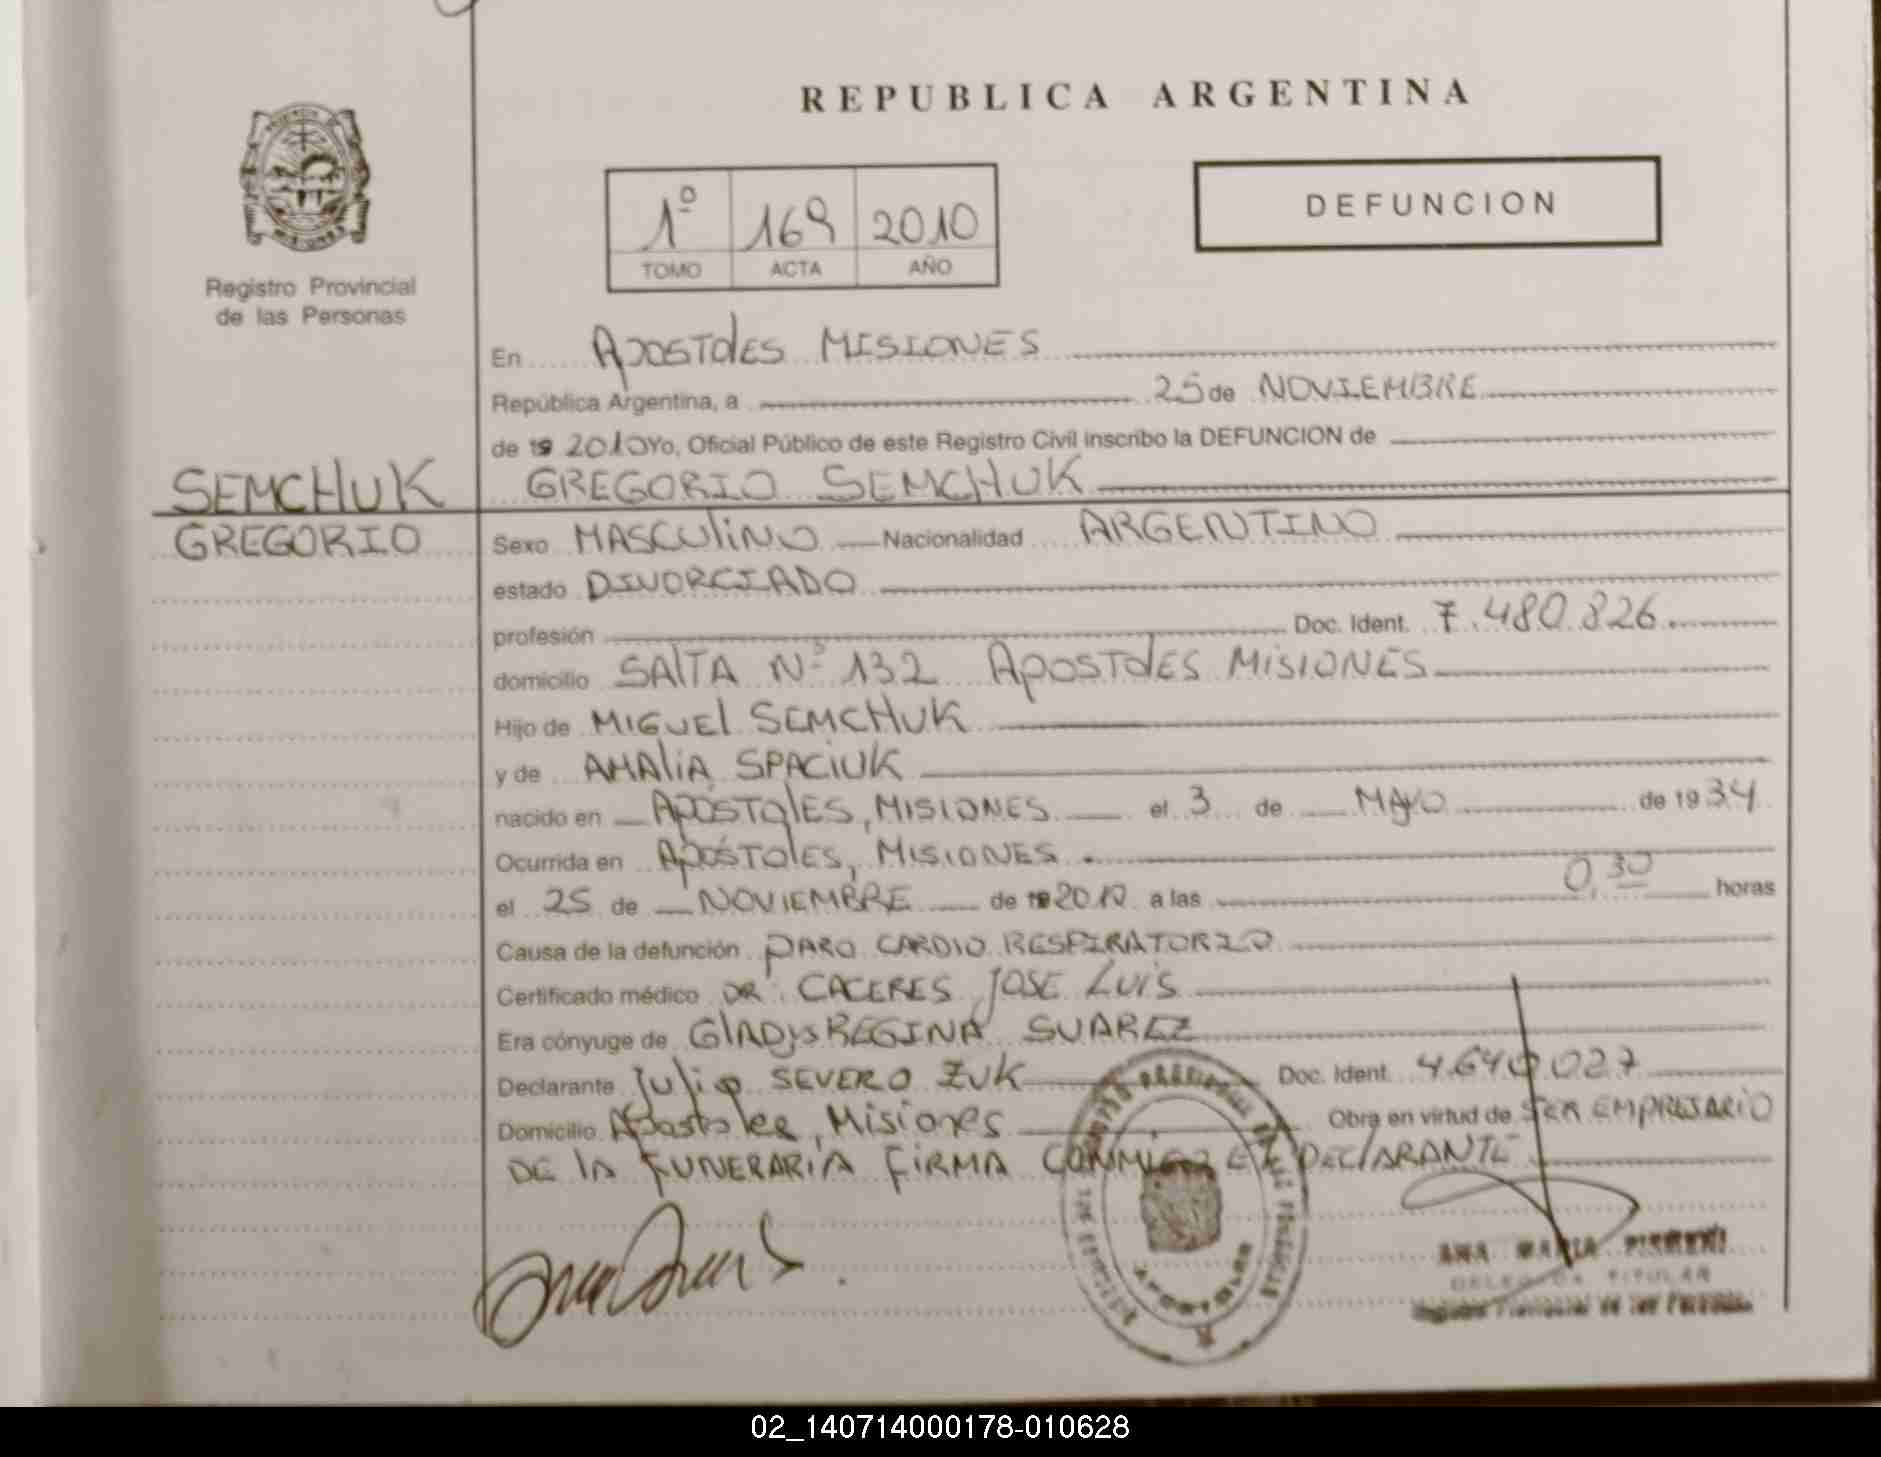 REPUBLICA ARGENTINA
1º 169 2010
TOMO ACTA AÑO
DEFUNCION
Registro Provincial
de las Personas
En APOSTOlES MISIONES
República Argentina, a 25 de NOVIEMBRE
de 19 2010 Yo, Oficial Público de este Registro Civil inscribo la DEFUNCION de
SEMCHUK GREGORIO SEMCHUK
GREGORIO Sexo MASCUliNO Nacionalidad ARGENTINO
estado DIVORCIADO
profesión Doc. Ident. 7.480.826
domicilio SAlTA Nº 132 APOSTOlES MISIONES
Hijo de MIGUEl SEMCHUK
y de AMAliA SPACIUK
nacido en APÓSTOlES, MISIONES el 3 de MAYO de 1934
Ocurrida en APÓSTOlES, MISIONES
el 25 de NOVIEMBRE de 19 2010 a las 0,30 horas
Causa de la defunción PARO CARDIO RESPIRATORIO
Certificado médico DR. CACERES JOSE LUIS
Era cónyuge de GlADyS REGINA SUAREZ
Declarante Julio SEVERO ZUK Doc. Ident. 4.640.027
Domicilio Apostoles, Misiones Obra en virtud de SER EMPRESARIO
DE lA FUNERARIA FIRMA CONMIGO El DEClARANTE
APOSTOLES
ANA MARIA
DELEGADA TITULAR
Registro Provincial de las Personas
02_140714000178-010628